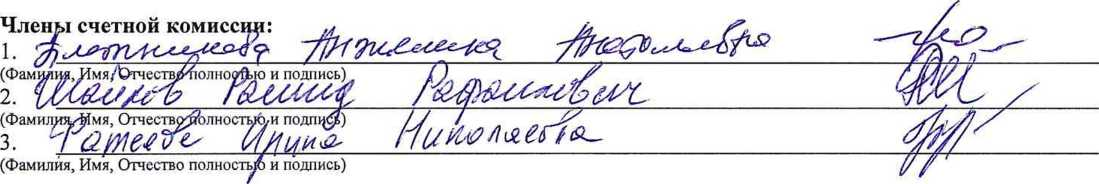 Члены счетной комиссии:
1. Плотникова Анжелика Анатольевна
(Фамилия, Имя, Отчество полностью и подпись)
2. Шайхов Рашид Рафаилович
(Фамилия, Имя, Отчество полностью и подпись)
3. Фатеева Ирина Николаевна
(Фамилия, Имя, Отчество полностью и подпись)